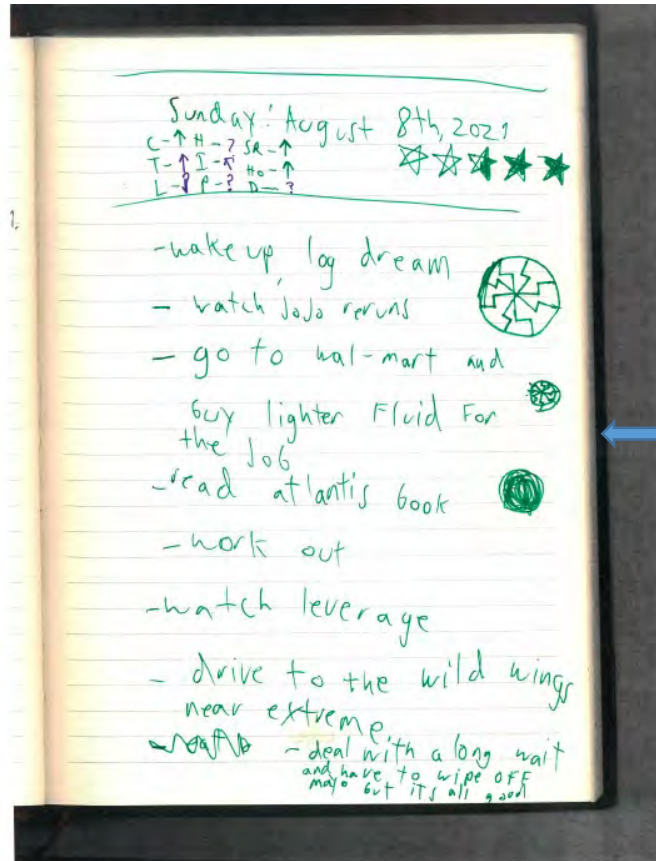 Sunday: August 8th, 2021
C-↑ H-? SR-↑
T-↑ I-↑ Ho-↑
L-↓ P-? D-?
-wake up, log dream
- watch jojo reruns
- go to wal-mart and
buy lighter Fluid For
the Job
-read atlantis book
-work out
-watch leverage
- drive to the wild wings
near extreme
- deal with a long wait
and have to wipe OFF
mayo but its all good